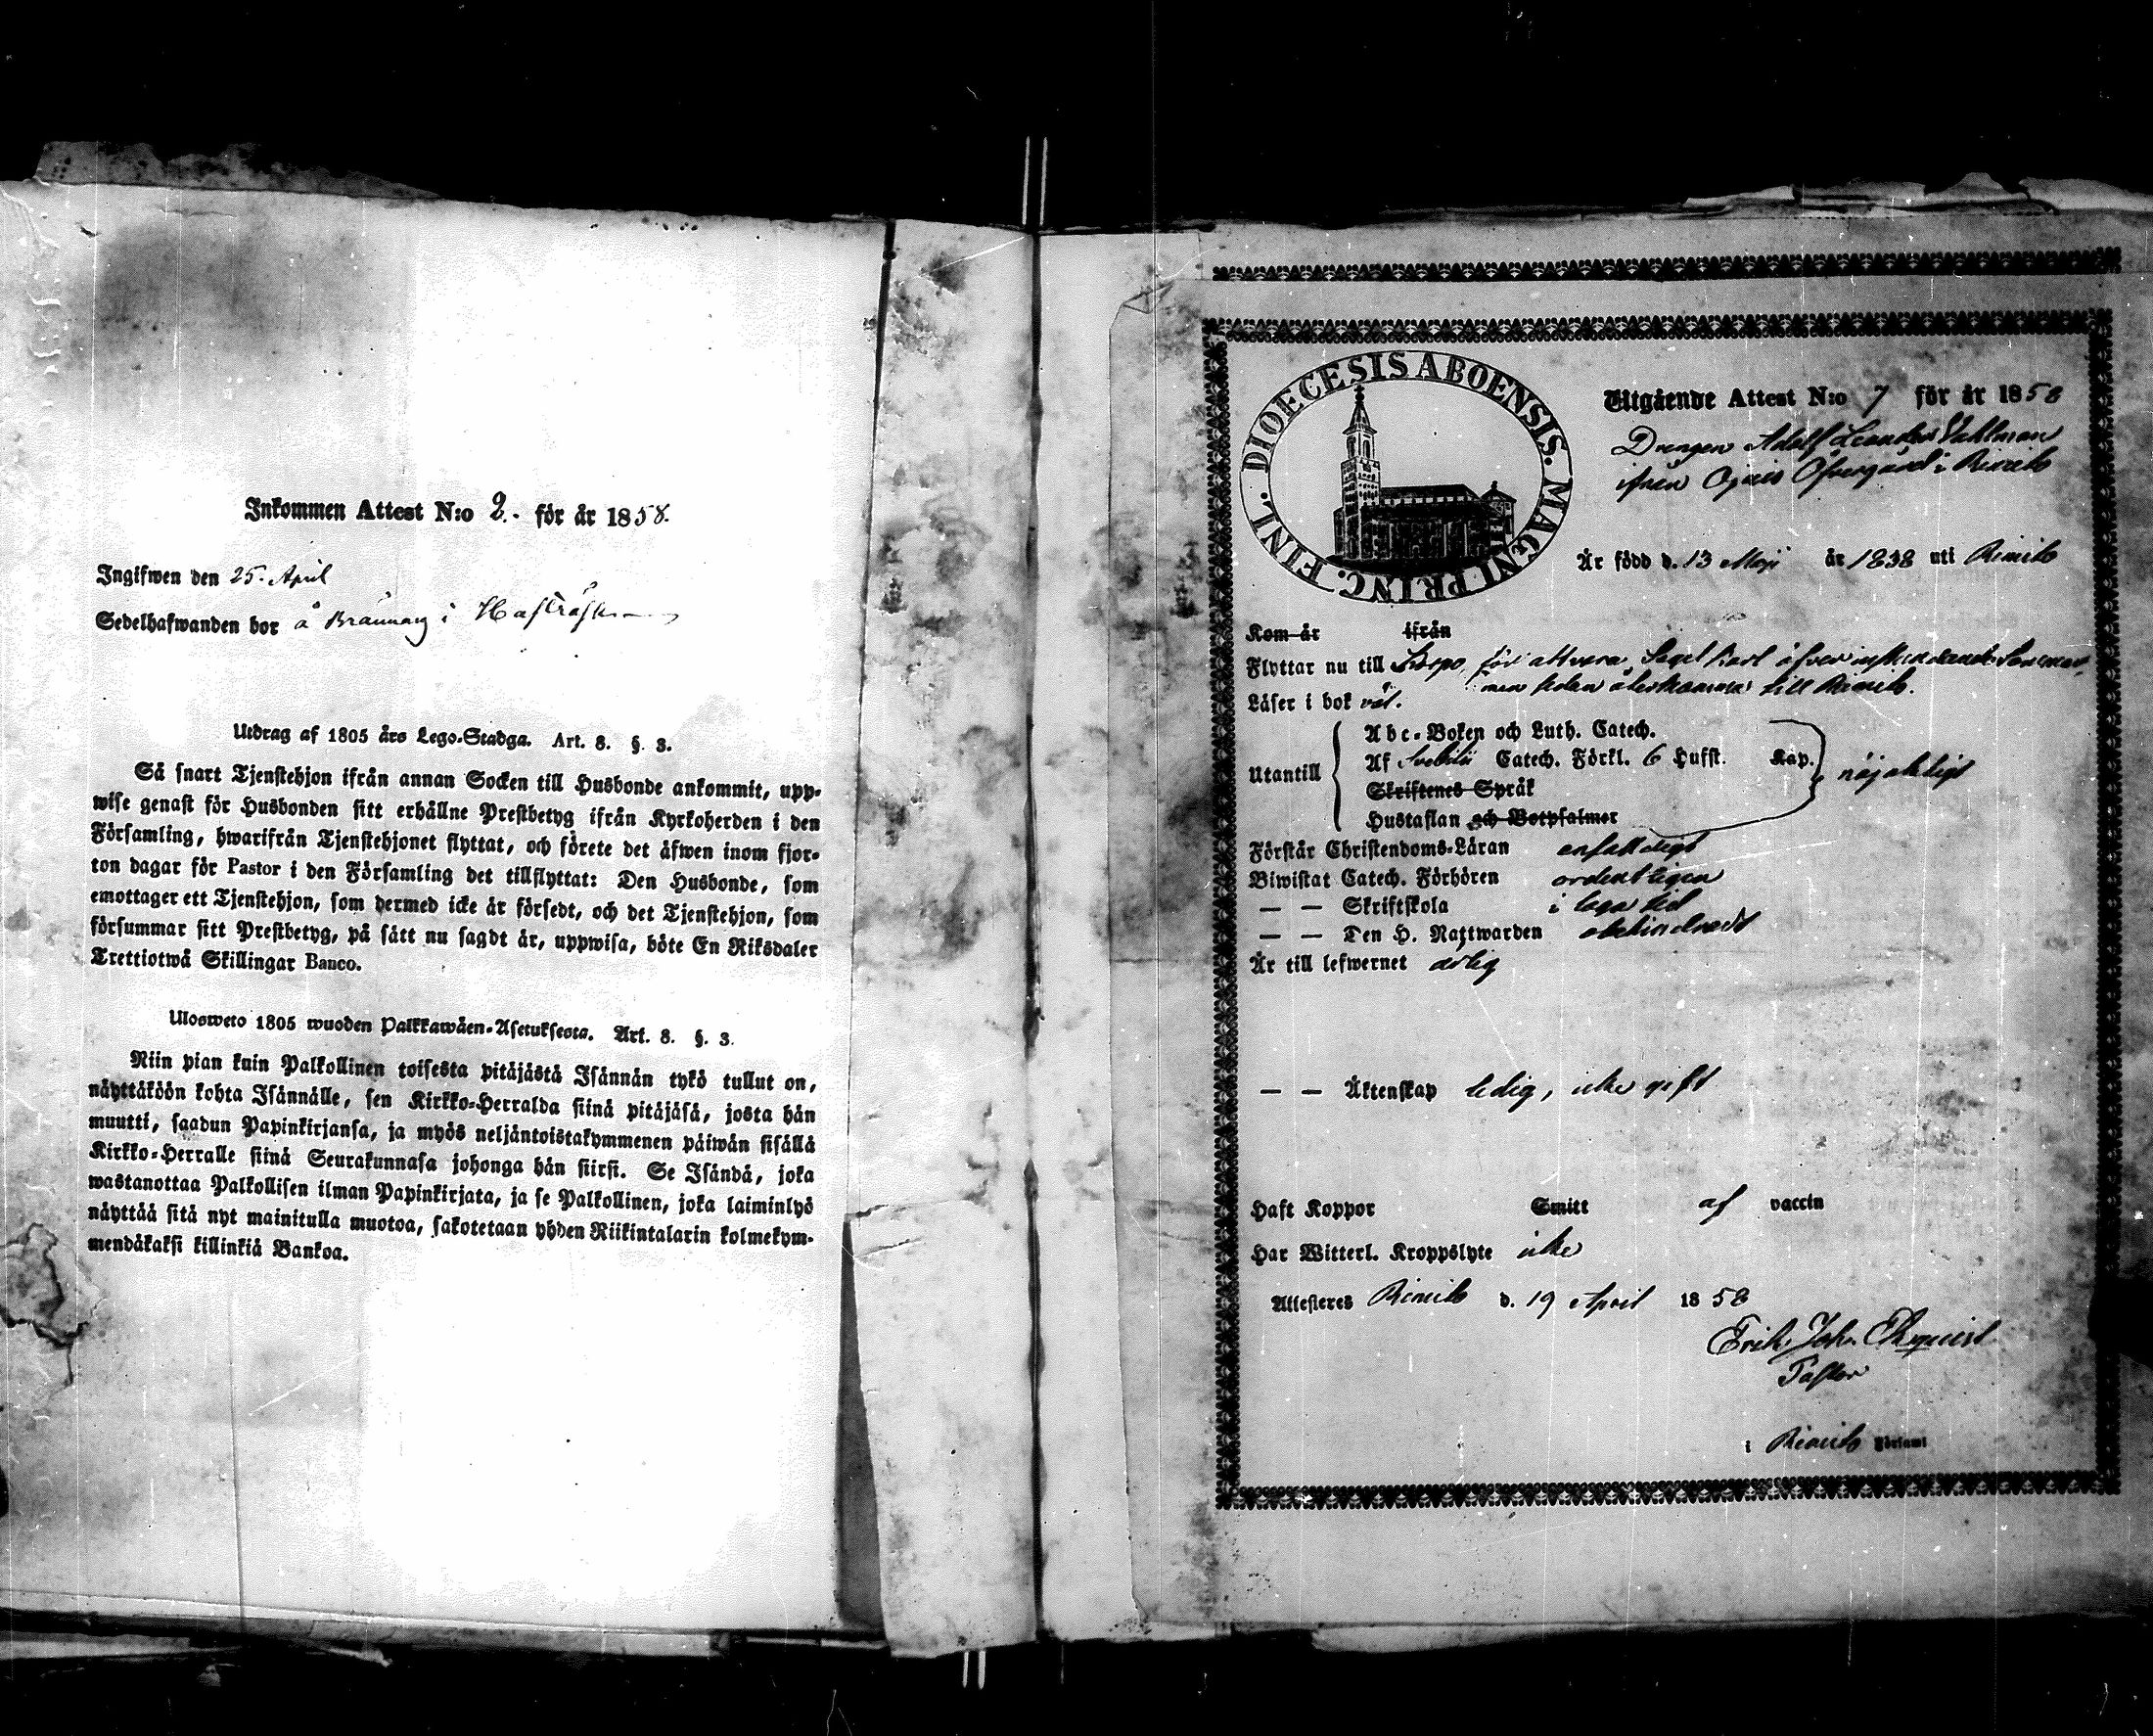 Inkommen Attest N:o 2. för år 1858.
Ingifwen den 25. April
Sedelhafwanden bor å Brännary i
Utdrag af 1805 års Lego-Stadga. Art. 8. §. 3.
Så snart Tjenstehjon ifrån annan Socken till Husbonde ankommit, upp-
wise genast för Husbonden sitt erhållne Prestbetyg ifrån Kyrkoherden i den
Församling, hwarifrån Tjenstehjonet flyttat, och förete det äfwen inom fjor-
ton dagar för Pastor i den Församling det tillflyttat: Den Husbonde, som
emottager ett Tjenstehjon, som dermed icke är försedt, och det Tjenstehjon, som
försummar sitt Prestbetyg, på sätt nu sagdt är, uppwisa, böte En Riksdaler
Trettiotwå Skillingar Banco.
Ulosweto 1805 wuoden Palkkawäen-Asetuksesta. Art. 8. §. 3.
Niin pian kuin Palkollinen toisesta pitäjästä Isännän tykö tullut on,
näyttäköön kohta Isännälle, sen Kirkko-Herralda siinä pitäjäsä, josta hän
muutti, saadun Papinkirjansa, ja myös neljäntoistakymmenen päiwän sisällä
Kirkko-Herralle siinä Seurakunnasa johonga hän siirsi. Se Isändä, joka
wastanottaa Palkollisen ilman Papinkirjata, ja se Palkollinen, joka laiminlyö
näyttää sitä nyt mainitulla muotoa, sakotetaan yhden Riikintalarin kolmekym-
mendäkaksi killinkiä Bankoa.
DIOECESIS ABOENSIS. MAGNI PRINC. FINL.
Utgående Attest N:o 7 för år 1858
Drengen Adolf Leander Vahlman
ifrån Öfvergård i Rimito
Är född d. 13 Maji år 1838 uti Rimito
Kom år ifrån
Flyttar nu till Korpo, för att vara
men sedan återkomma till Rimito.
Läser i bok väl.
Utantill
Abc-Boken och Luth. Catech.
Af Svebilii Catech. Förkl. 6 Hufst. Kap.
Skriftenes Språk
Hustaflan och Botpsalmer
nöjaktigt
Förstår Christendoms-Läran enfaldigt
Biwistat Catech. Förhören ordentligen
— — Skriftskola i laga tid
— — Den H. Nattwarden obehindradt
Är till lefwernet ärlig
— — Äktenskap ledig, icke gift
Haft Koppor Smitt af vaccin
Har Witterl. Kroppslyte icke
Attesteres Rimito d. 19 April 1858
Erik Joh. Ekquist
Pastor
i Rimito Församl